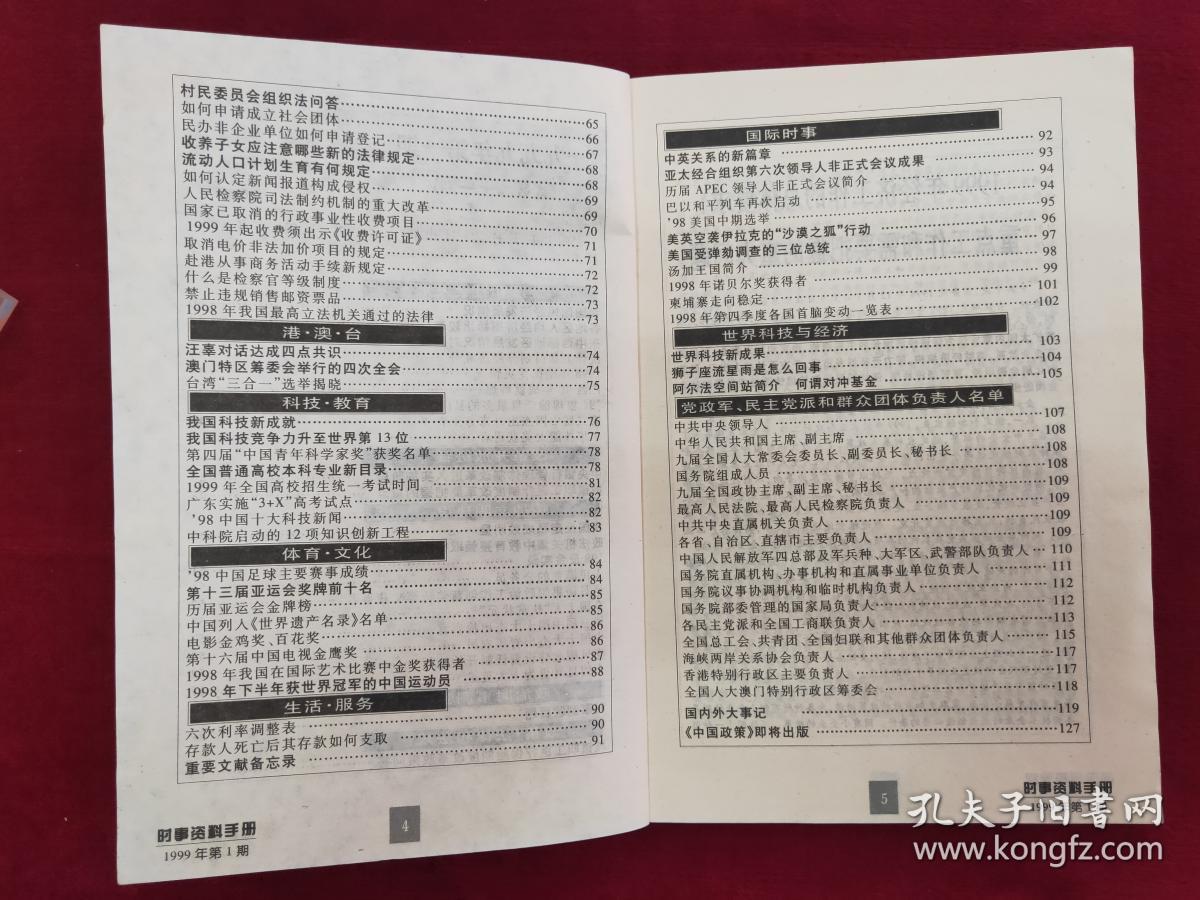 村民委员会组织法问答…………65
如何申请成立社会团体…………66
民办非企业单位如何申请登记…………67
收养子女应注意哪些新的法律规定…………68
流动人口计划生育有何规定…………68
如何认定新闻报道构成侵权…………69
人民检察院司法制约机制的重大改革…………69
国家已取消的行政事业性收费项目…………70
1999年起收费须出示《收费许可证》…………71
取消电价非法加价项目的规定…………71
赴港从事商务活动手续新规定…………72
什么是检察官等级制度…………72
禁止违规销售邮资票品…………73
1998年我国最高立法机关通过的法律…………73
港·澳·台
汪辜对话达成四点共识…………74
澳门特区筹委会举行的四次全会…………74
台湾“三合一”选举揭晓…………75
科技·教育
我国科技新成就…………76
我国科技竞争力升至世界第13位…………77
第四届“中国青年科学家奖”获奖名单…………78
全国普通高校本科专业新目录…………78
1999年全国高校招生统一考试时间…………81
广东实施“3+X”高考试点…………82
’98中国十大科技新闻…………82
中科院启动的12项知识创新工程…………83
体育·文化
’98中国足球主要赛事成绩…………84
第十三届亚运会奖牌前十名…………84
历届亚运会金牌榜…………85
中国列入《世界遗产名录》名单…………85
电影金鸡奖、百花奖…………86
第十六届中国电视金鹰奖…………86
1998年我国在国际艺术比赛中金奖获得者…………87
1998年下半年获世界冠军的中国运动员…………88
生活·服务
六次利率调整表…………90
存款人死亡后其存款如何支取…………90
重要文献备忘录…………91
时事资料手册
1999年第1期
4
国际时事
中英关系的新篇章…………92
亚太经合组织第六次领导人非正式会议成果…………93
历届APEC领导人非正式会议简介…………94
巴以和平列车再次启动…………94
’98美国中期选举…………95
美英空袭伊拉克的“沙漠之狐”行动…………96
美国受弹劾调查的三位总统…………97
汤加王国简介…………98
1998年诺贝尔奖获得者…………99
柬埔寨走向稳定…………101
1998年第四季度各国首脑变动一览表…………102
世界科技与经济
世界科技新成果…………103
狮子座流星雨是怎么回事…………104
阿尔法空间站简介 何谓对冲基金…………105
党政军、民主党派和群众团体负责人名单
中共中央领导人…………107
中华人民共和国主席、副主席…………108
九届全国人大常委会委员长、副委员长、秘书长…………108
国务院组成人员…………108
九届全国政协主席、副主席、秘书长…………109
最高人民法院、最高人民检察院负责人…………109
中共中央直属机关负责人…………109
各省、自治区、直辖市主要负责人…………109
中国人民解放军四总部及军兵种、大军区、武警部队负责人…110
国务院直属机构、办事机构和直属事业单位负责人…………111
国务院议事协调机构和临时机构负责人…………112
国务院部委管理的国家局负责人…………112
各民主党派和全国工商联负责人…………113
全国总工会、共青团、全国妇联和其他群众团体负责人…………115
海峡两岸关系协会负责人…………117
香港特别行政区主要负责人…………117
全国人大澳门特别行政区筹委会…………118
国内外大事记…………119
《中国政策》即将出版…………127
5
时事资料手册
1999年第1期
孔夫子旧书网
www.kongfz.com